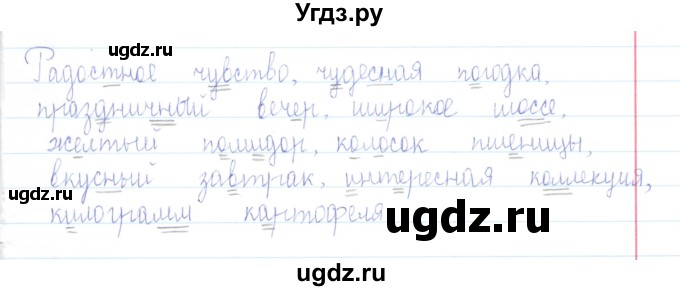 Угдз.ру
Радостное чувство, чудесная погодка,
праздничный вечер, широкое шоссе,
желтый помидор, колосок пшеницы,
вкусный завтрак, интересная коллекция,
килограмм картофеля
ugdz.ru
ugdz.ru
ugdz.ru
ugdz.ru
ugdz.ru
ugdz.ru